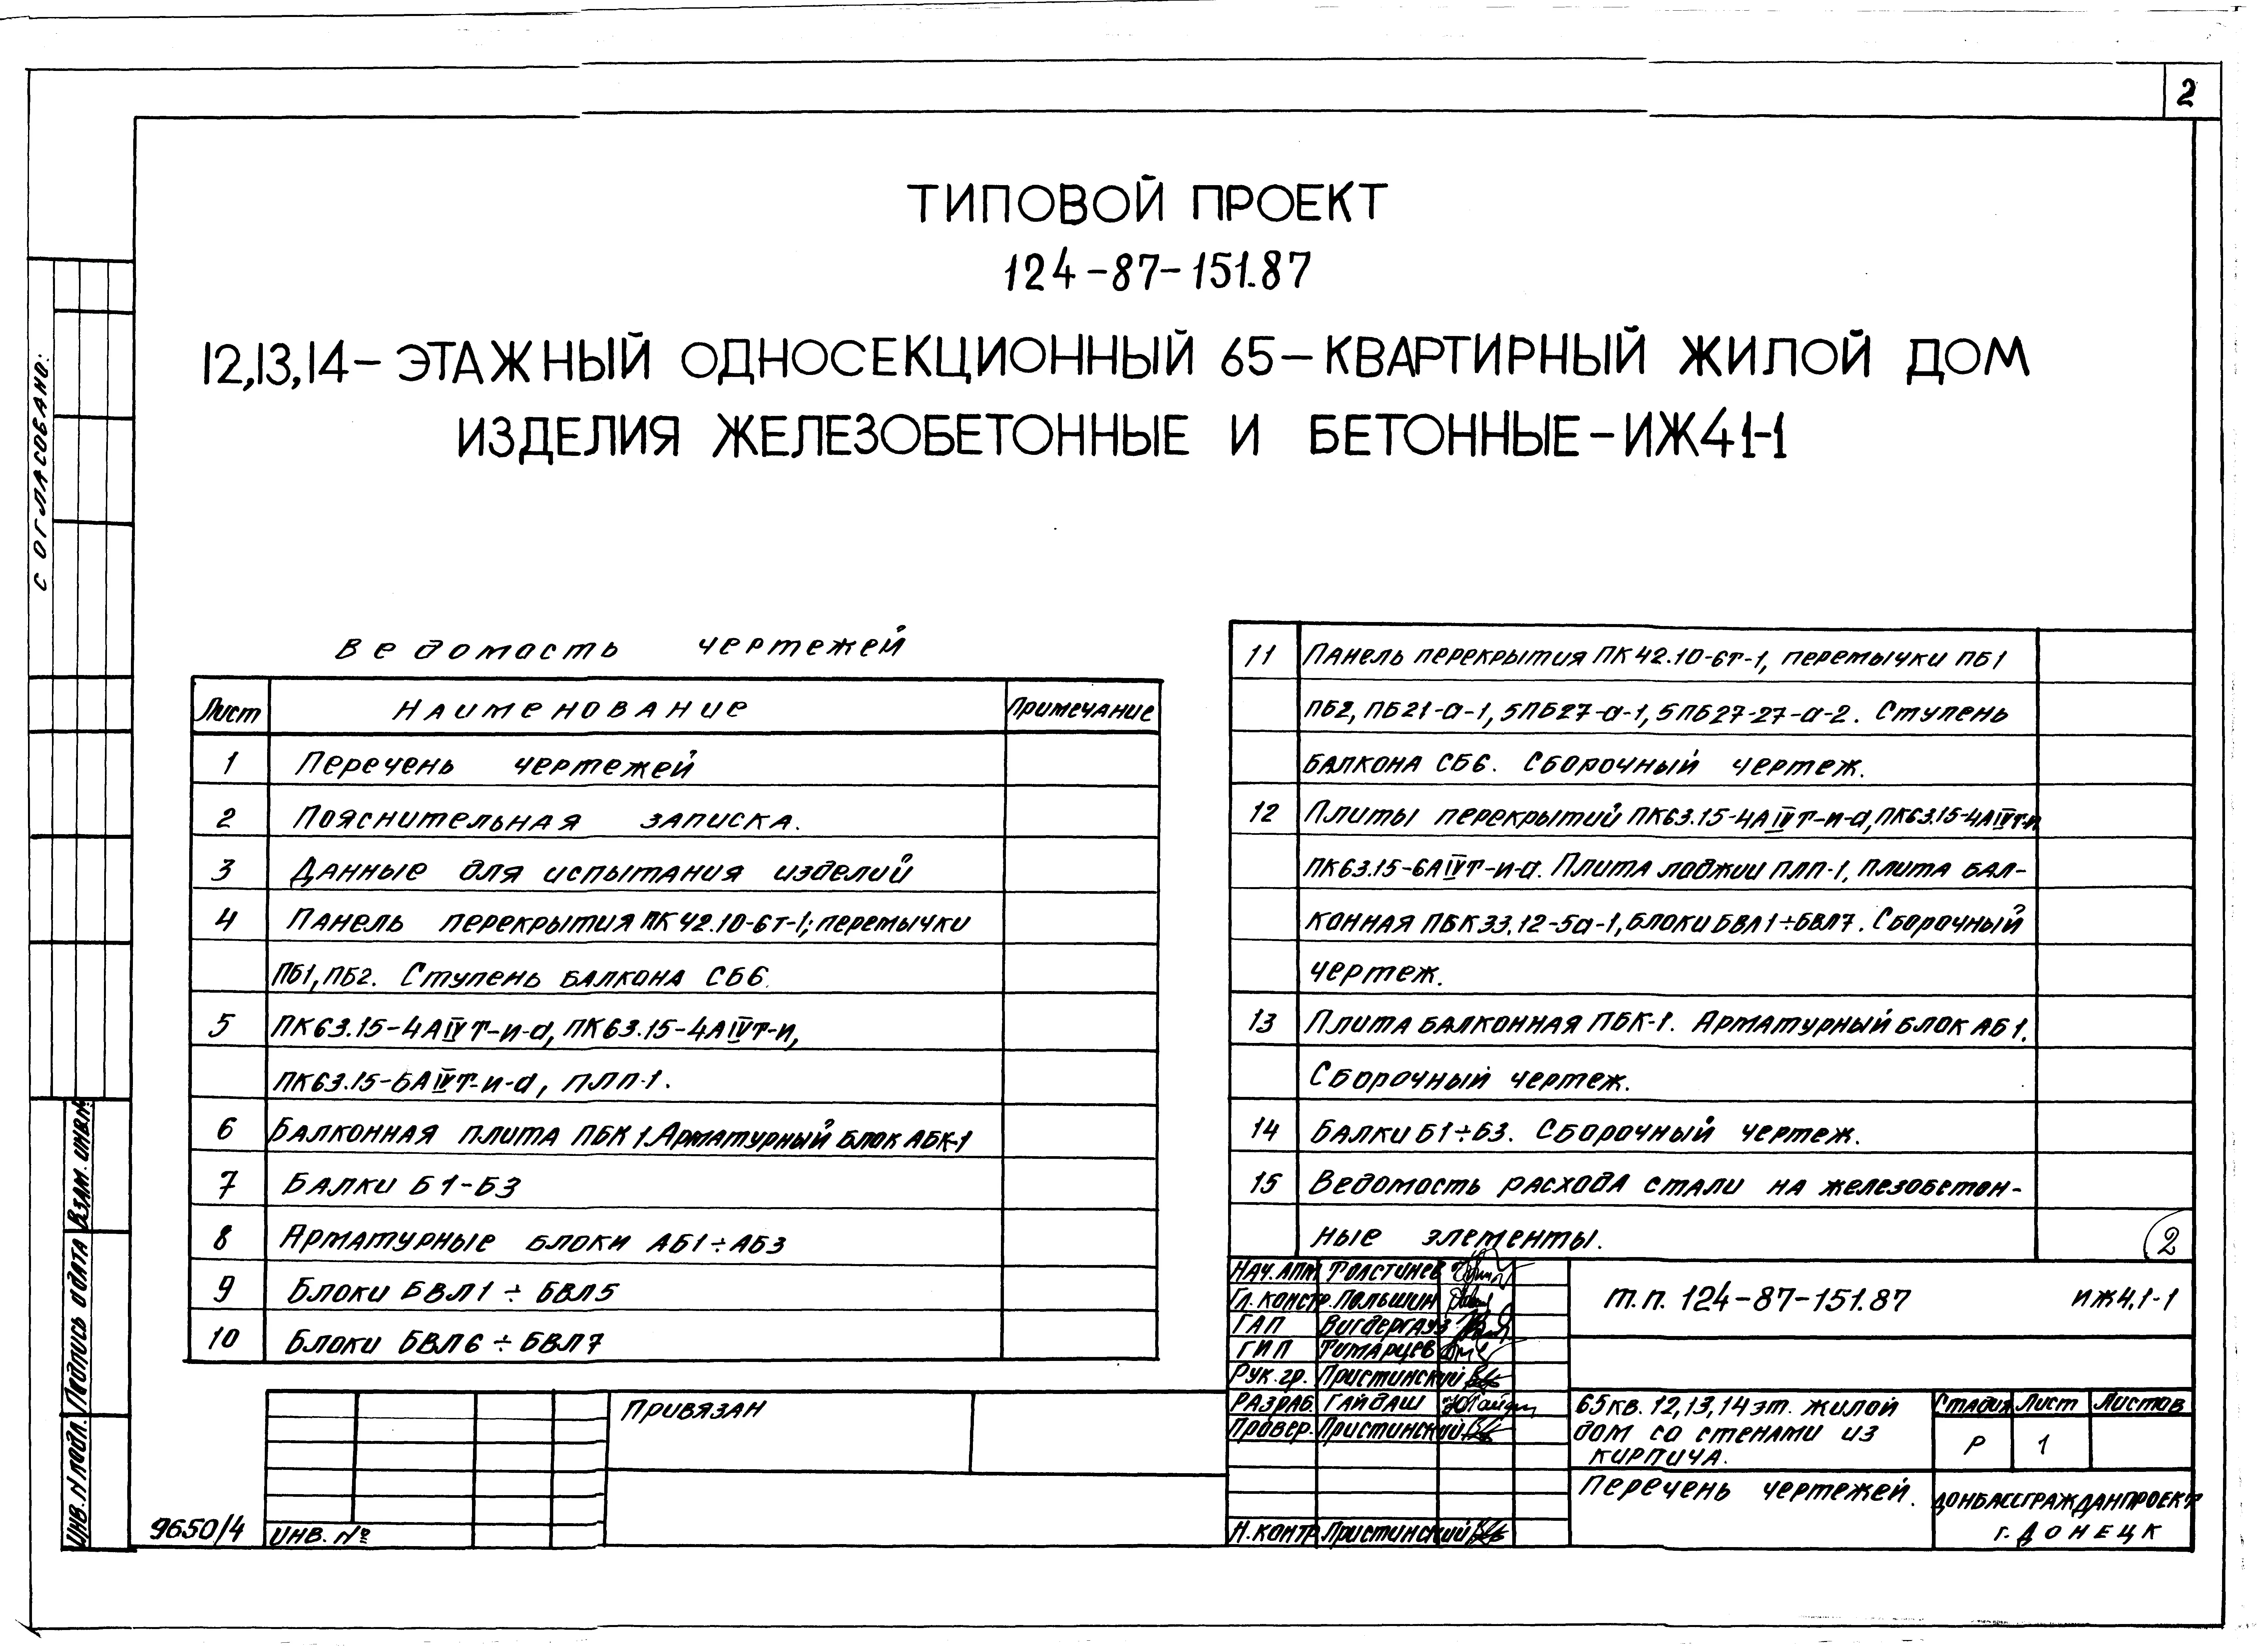 2
ТИПОВОЙ ПРОЕКТ
124-87-151.87
12,13,14-ЭТАЖНЫЙ ОДНОСЕКЦИОННЫЙ 65-КВАРТИРНЫЙ ЖИЛОЙ ДОМ
ИЗДЕЛИЯ ЖЕЛЕЗОБЕТОННЫЕ И БЕТОННЫЕ-ИЖ4.1-1
СОГЛАСОВАНО:
Ведомость чертежей
Лист Наименование Примечание
1 Перечень чертежей
2 Пояснительная записка.
3 Данные для испытания изделий
4 Панель перекрытия ПК42.10-6т-1; перемычки
ПБ1, ПБ2. Ступень балкона СБ6.
5 ПК63.15-4АIVТ-и-а, ПК63.15-4АIVт-и,
ПК63.15-6АIVТ-и-а, ПЛП-1.
6 Балконная плита ПБК1. Арматурный блок АБК-1
7 Балки Б1-Б3
8 Арматурные блоки АБ1÷АБ3
9 Блоки БВЛ1÷БВЛ5
10 Блоки БВЛ6÷БВЛ7
11 Панель перекрытия ПК42.10-6т-1, перемычки ПБ1
ПБ2, ПБ21-а-1, 5ПБ27-а-1, 5ПБ27-27-а-2. Ступень
балкона СБ6. Сборочный чертеж.
12 Плиты перекрытий ПК63.15-4АIVТ-и-а, ПК63.15-4АIVт-и
ПК63.15-6АIVТ-и-а. Плита лоджии ПЛП-1, плита бал-
конная ПБК33.12-5а-1, блоки БВЛ1÷БВЛ7. Сборочный
чертеж.
13 Плита балконная ПБК-1. Арматурный блок АБ1.
Сборочный чертеж.
14 Балки Б1÷Б3. Сборочный чертеж.
15 Ведомость расхода стали на железобетон-
ные элементы.
2
Нач. АПМ Толстинев
Гл. констр. Польшин
ГАП Вигдергауз
ГИП Тимарцев
Рук. гр. Пристинский
Разраб. Гайдаш
Провер. Пристинский
Н. контр Пристинский
т.п. 124-87-151.87 ИЖ4.1-1
65кв. 12,13,14эт. жилой
дом со стенами из
кирпича.
Стадия Лист Листов
Р 1
Перечень чертежей.
ДОНБАССГРАЖДАНПРОЕКТ
г. ДОНЕЦК
Привязан
ИНВ. №
9650/4
Инв. N подл. Подпись и дата Взам. инв. №